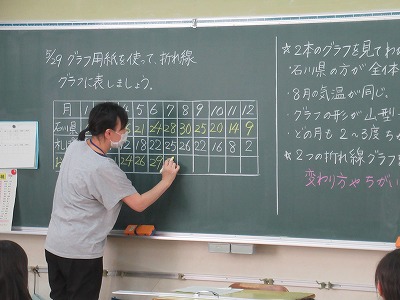 5/29 グラフ用紙を使って、折れ線
グラフに表しましょう。
月 1 4 5 6 7 8 9 10 11 12
石川県 21 24 28 30 25 20 14 9
札 12 18 22 25 26 22 16 8 2
24 26 29
☆2本のグラフを見てわ
石川県の方が全体
・8月の気温が同じ。
・グラフの形が山型
・どの月も2~3度ち
☆2つの折れ線グラフ
変わり方やちがい